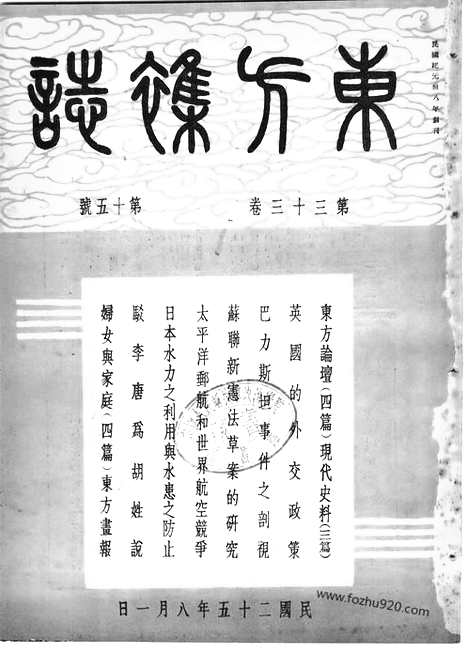 民國紀元前八年創刊
東方雜誌
第三十三卷
第十五號
東方論壇(四篇)現代史料(三篇)
英國的外交政策
巴力斯坦事件之剖視
蘇聯新憲法草案的研究
太平洋郵航和世界航空競爭
日本水力之利用與水患之防止
駁李唐爲胡姓說
婦女與家庭(四篇)東方畫報
民國二十五年八月一日
www.fozhu920.com